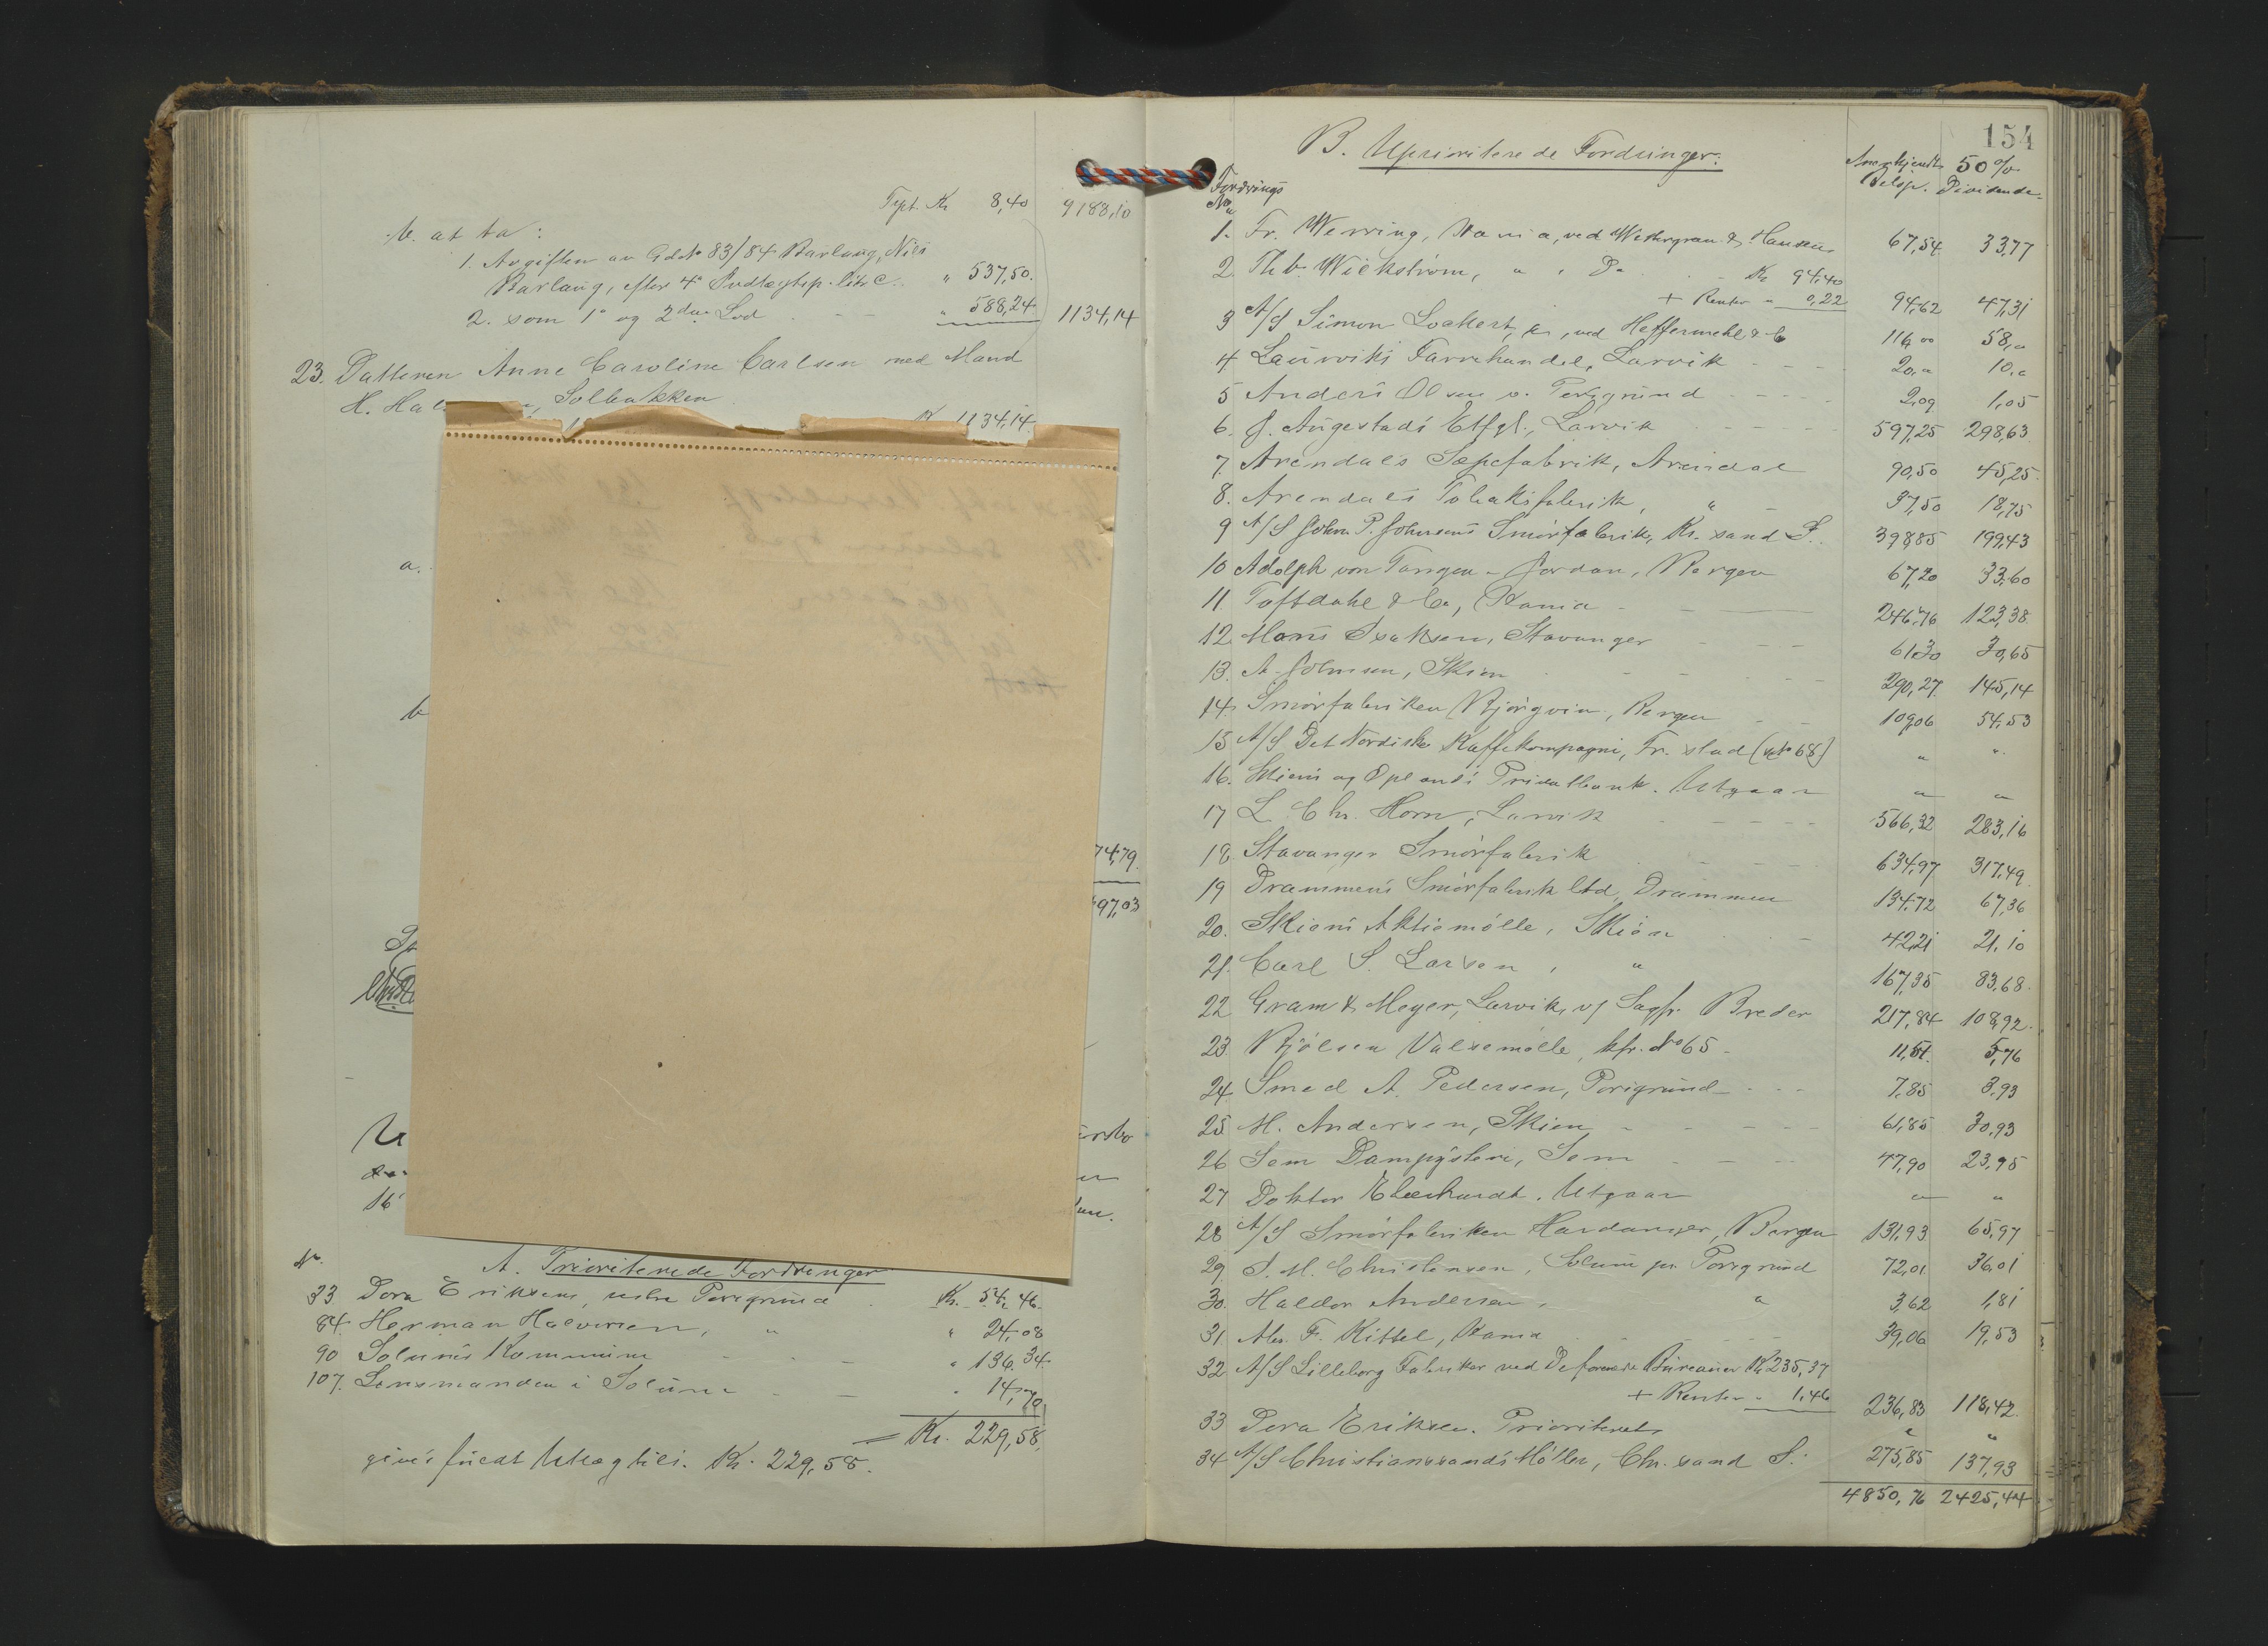 Tpt. Kr 8,40 9188,10
b. at ta:
1. Avgiften av Gd No 83/84 Barlaug, Nils
Barlaug, efter 4° Indtægtsp. litr C. " 537,50.
2. som 1° og 2den Lod " 588,24 1134,14
23. Datteren Anne Caroline Carlsen med Mand
H. Hal Solbakken
Kr 1134,14
a.
b
74,79
97,03
16
No.
A. Prioriterede Fordringer
33 Dora Eriksen, vestre Porsgrund Kr. 54,46.
84 Herman Halvorsen, " " 24,08
90 Solums Kommune " 136,34
107. Lensmanden i Solum " 14,70
= Kr. 229,58.
gives fuldt Utlæg tils. Kr. 229,58.
154
B. Uprioriterede Fordringer:
Fordrings No. Anerkjendt Beløp. 50% Dividende.
1. Fr. Werring, Kania, ved Westergren & Hansen 67,54 33,77
2. Th. b. Wickstrøm, " " Do Kr 94,40
+ Renter " 0,22 94,62 47,31
3 A/S Simon Lockert, ved Heffermehl & Co 116,00 58,"
4 Laurviks Farvehandel, Larvik 20," 10,"
5 Anders Olsen v. Porsgrund 2,09 1,05
6. J. Augestads Eftfl., Larvik 597,25 298,63
7. Arendals Sæpefabrik, Arendal 90,50 45,25.
8. Arendals Tobaksfabrik, " 37,50 18,75
9 A/S John P. Johnsens Smørfabrik, Kr. sand S. 398,85 199,43
10 Adolph von Tangen - Jordan, Bergen 67,20 33,60
11. Toftdahl & Co, Kania 246,76 123,38.
12. Mons Isaksen, Stavanger 61,30 30,65
13. A. Johnsen, Skien 290,27. 145,14
14. Smørfabriken Bjørgvin, Bergen 109,06 54,53
15 A/S Det Nordiske Kaffekompagni, Fr. stad (No 68) " "
16. Skiens og Oplands Privatbank. Utgaar " "
17 L. Chr. Horn, Larvik 566,32 283,16
18 Stavanger Smørfabrik 634,97 317,49
19 Drammens Smørfabrik ltd, Drammen 134,72 67,36
20. Skiens Aktiemølle, Skien 42,21 21,10
21. Carl S. Larsen, " 167,35 83,68.
22 Gram & Meyer, Larvik, v/ Sagfr. Breder 217,84 108,92.
23. Bjølsen Valsemølle, kfr. No 65 11,51. 5,76
24 Smed A. Pedersen, Porsgrund 7,85 3,93
25 M. Andersen, Skien 61,85 30,93
26 Sem Dampysteri, Sem 47,90 23,95
27 Doktor Eberhardt. Utgaar " "
28 A/S Smørfabriken Hardanger, Bergen 131,93 65,97
29. S. M. Christensen, Solum pr. Porsgrund 72,01 36,01
30. Haldor Andersen, " 3,62 1,81
31. Alex. F. Kittel, Kania 39,06 19,53
32 A/S Lilleborg Fabriker ved De forenede Bureauer Kr 235,37
+ Renter " 1,46 236,83 118,42.
33 Dora Eriksen. Prioriteret " "
34 A/S Christianssands Møller, Chr. sand S. 275,85 137,93
4850,76 2425,44